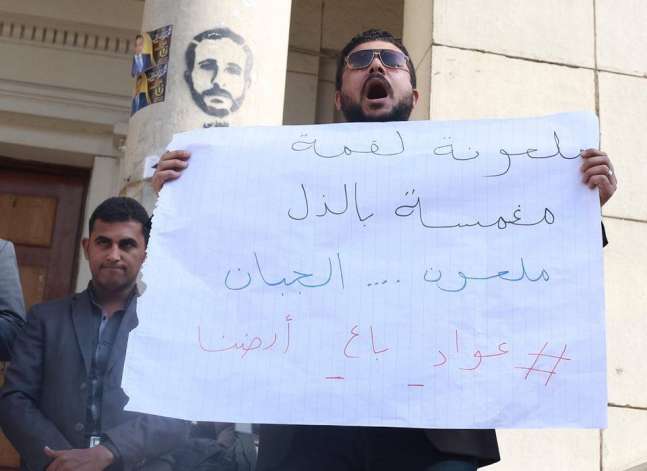 ملعونة لقمة
مغمسة بالذل
ملعون .... الجبان
#عواد_باع_أرضنا